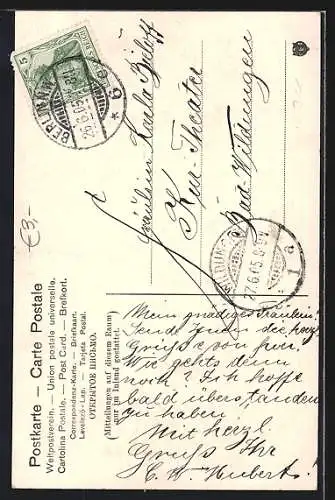 Postkarte — Carte Postale
Weltpostverein. — Union postale universelle.
Cartolina Postale. — Post Card. — Brefkort.
Correspondenz-Karte. — Briefkaart.
Levelező-Lap. — Tarjeta Postal.
ОТКРЫТОЕ ПИСЬМО.
(Mitteilungen auf diesem Raum
nur im Inland gestattet.)
€3,-
5
BERLIN
26.6.05
* 6
Fräulein Karla
Kur-Theater
Bad-Wildungen
WILDUNGEN
27.6.05. 8-9
1 a
Mein gnädiges Fräulein!
Send Ihnen die herzl.
Grüsse von
Wie gehts denn
noch? Ich hoffe
bald überstanden
zu haben!
Mit herzl.
Gruss Ihr
C. W. Hubert!